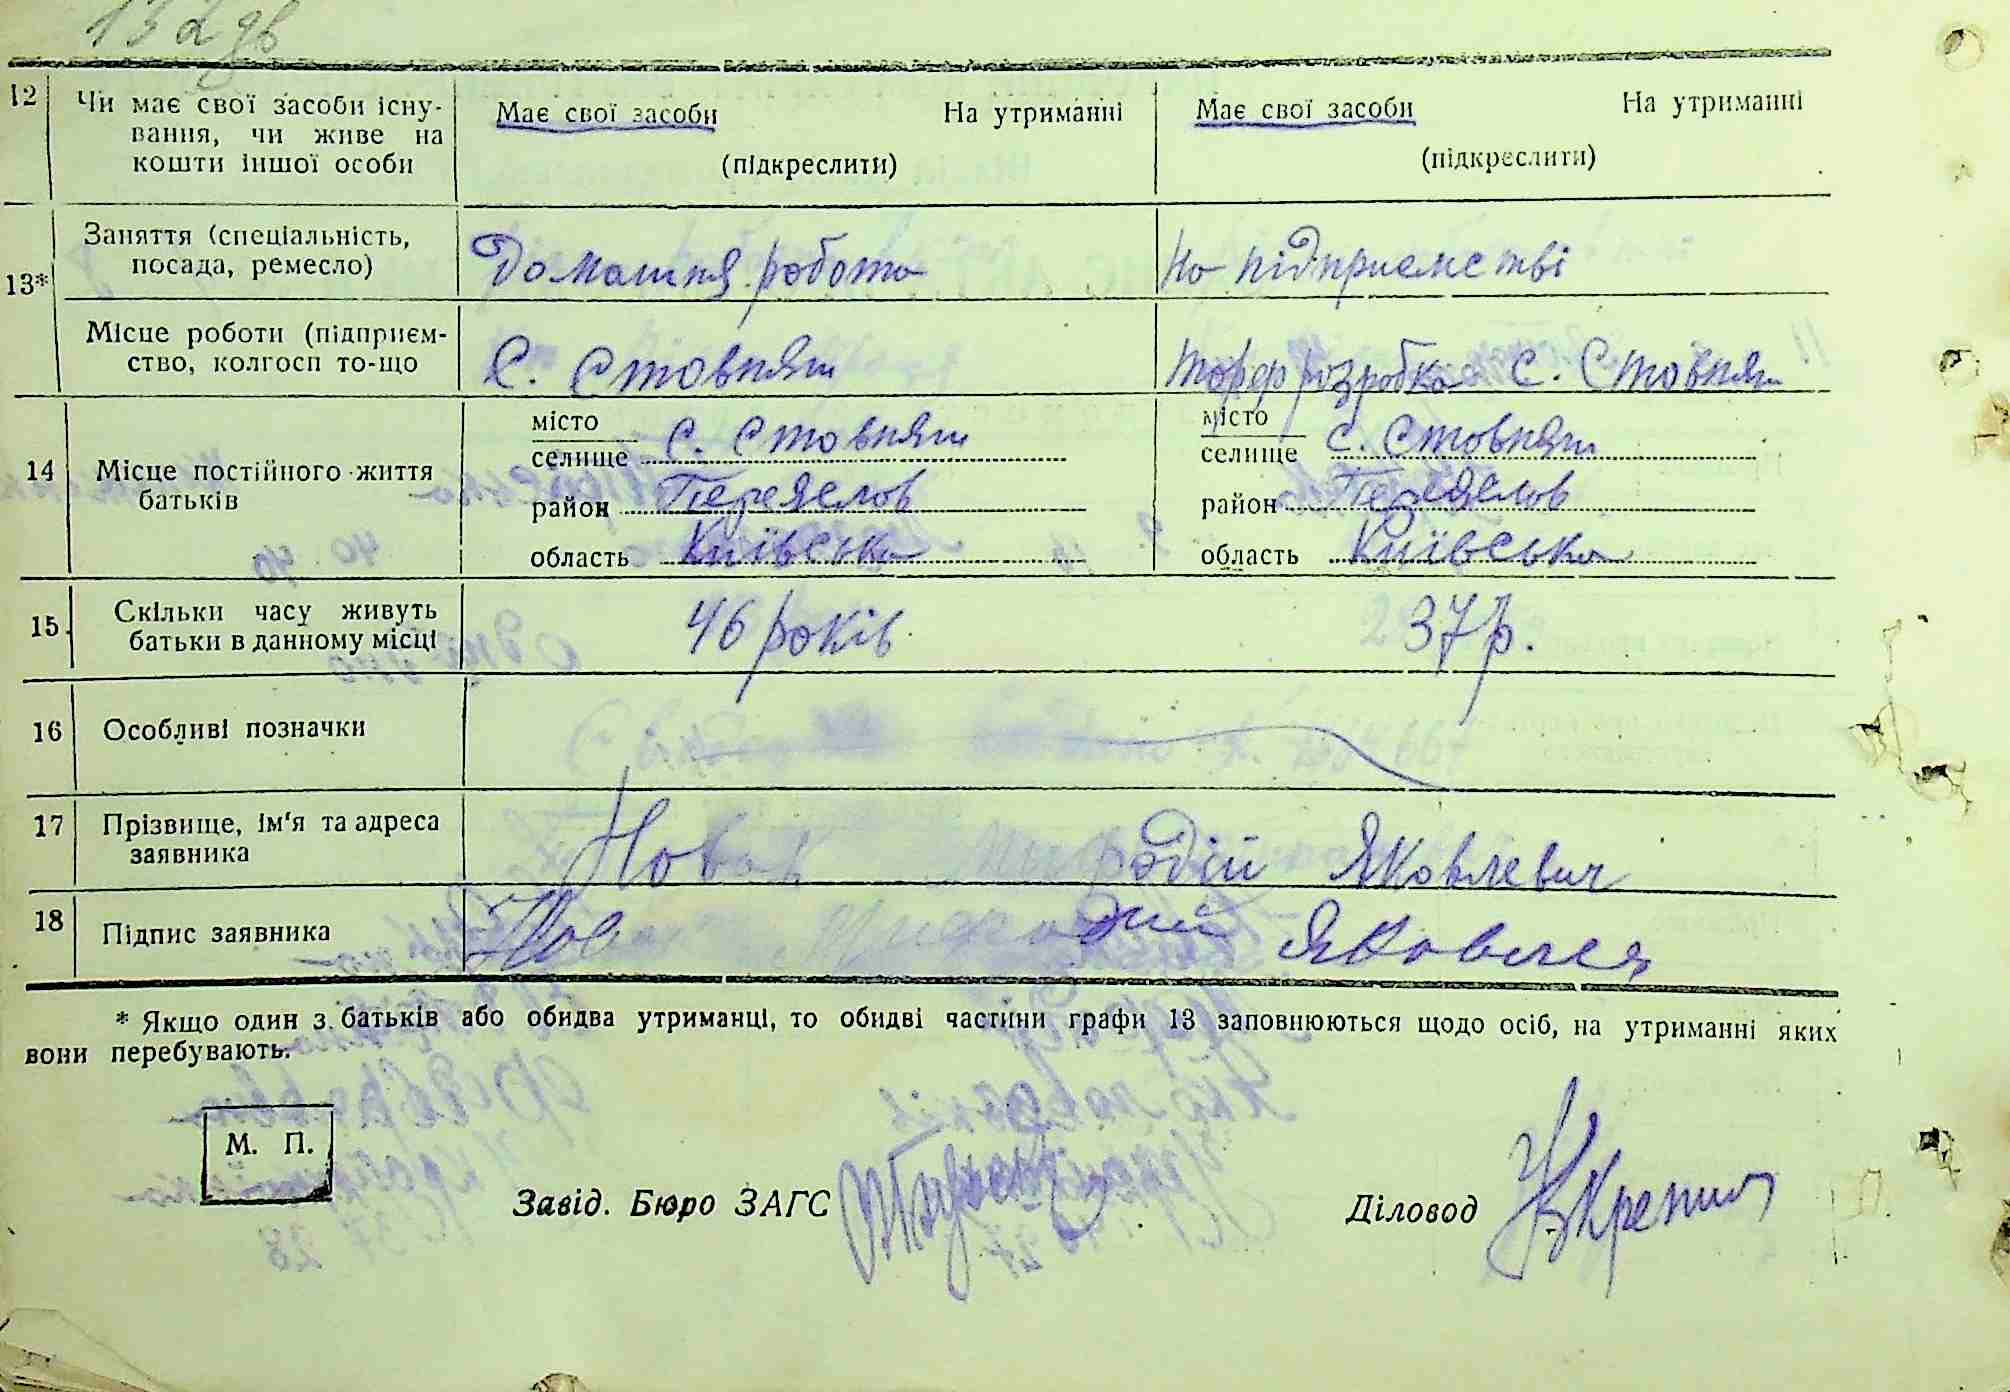 132 дв
12 Чи має свої засоби існу- Має свої засоби На утриманні Має свої засоби На утриманні
вання, чи живе на
кошти іншої особи (підкреслити) (підкреслити)
13* Заняття (спеціальність, Домашня робота На підприємстві
посада, ремесло)
Місце роботи (підприєм- С. Стовпяги Торфрозробка с. Стовпяги
ство, колгосп то-що
14 Місце постійного життя
батьків
місто
селище с. Стовпяги
район Переяслов
область Київська
місто
селище с. Стовпяги
район Переяслов
область Київська
15. Скільки часу живуть 46 років. 37 р.
батьки в данному місці
16 Особливі позначки
17 Прізвище, ім'я та адреса Новак Яковлевич
заявника
18 Підпис заявника
* Якщо один з батьків або обидва утриманці, то обидві частини графи 13 заповнюються щодо осіб, на утриманні яких
вони перебувають.
М. П.
Завід. Бюро ЗАГС
Діловод